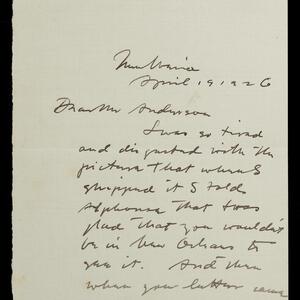 New Orleans
April 19 1926
Dear Mr Anderson
I was so tired
and disgusted with the
picture that when I
shipped it I told
Alphonse that I was
glad that you wouldn't
be in New Orleans to
see it. And then
when your letter came